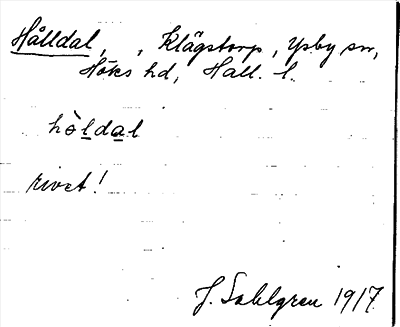 Hålldal, , Klägstorp, Ysby sn,
Höks hd, Hall. l.
hòldal
rivet!
J. Sahlgren 1917